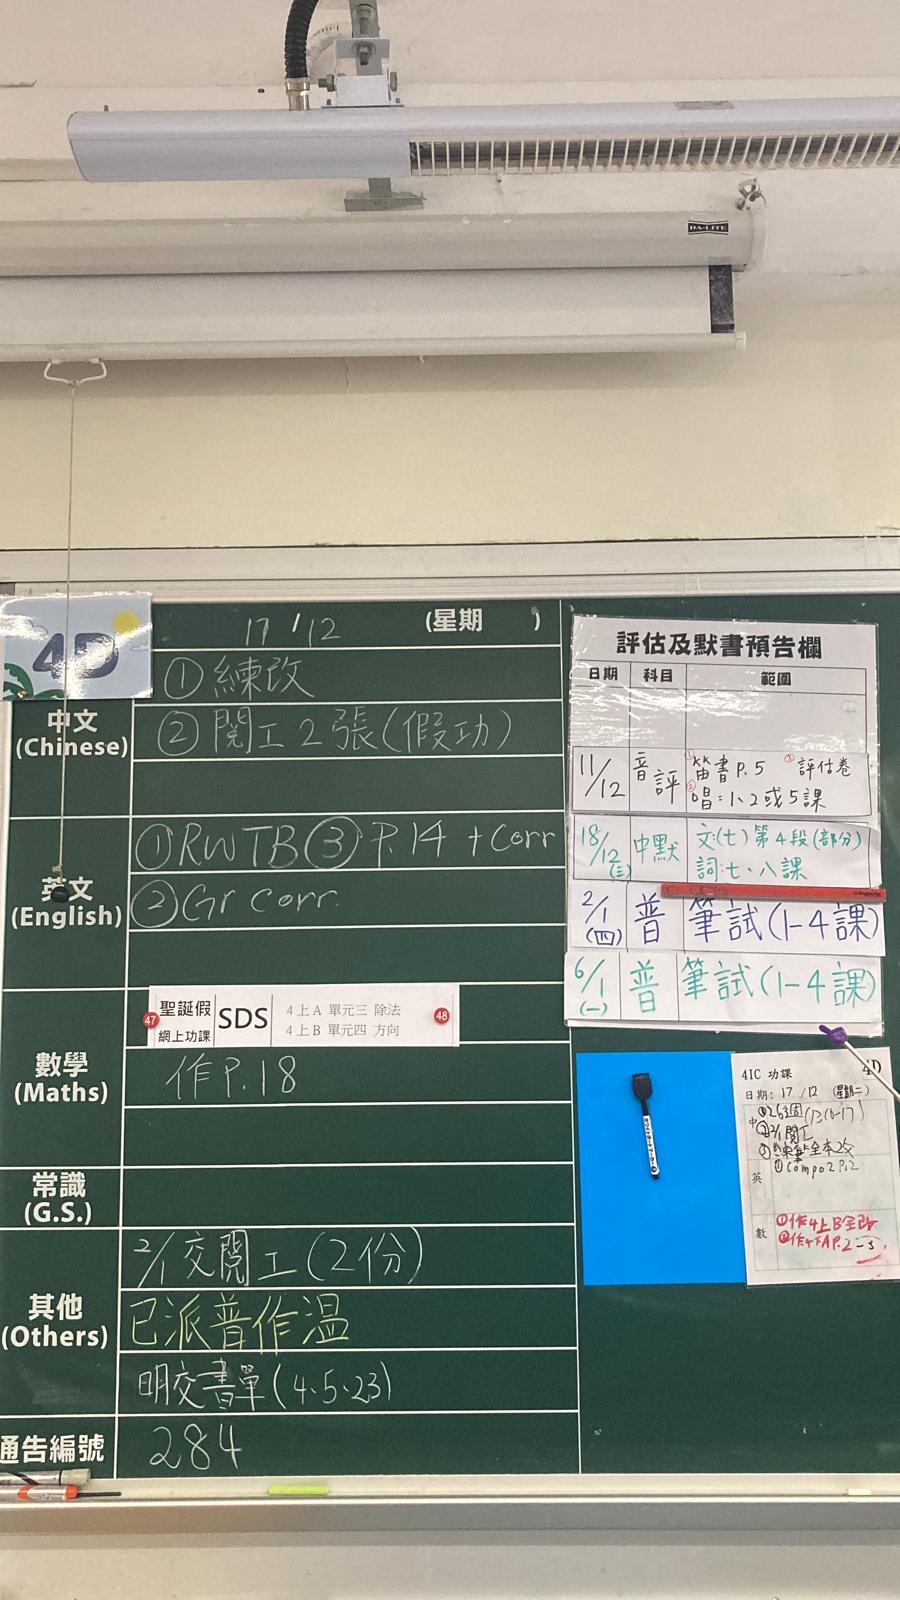 DA-LITE
4D
17/12 (星期 )
中文
(Chinese)
①練改
②閱工2張(假功)
英文
(English)
①RWTB③P.14 + Corr
②Gr Corr.
數學
(Maths)
47 聖誕假
網上功課
SDS
4上A 單元三 除法
4上B 單元四 方向
48
作P.18
常識
(G.S.)
其他
(Others)
2/1交閱工(2份)
已派普作溫
明交書單(4、5、23)
通告編號
284
評估及默書預告欄
日期 科目 範圍
11/12 音評 ①笛書P.5 ③評估卷
②唱:1、2或5課
18/12(三) 中默 文:(七)第4段(部分)
詞:七、八課
2/1(四) 普 筆試(1-4課)
6/1(一) 普 筆試(1-4課)
4IC 功課 4D
日期: 17/12 (星期二)
中
②2/1閱工
英 ①Compo2 P.2
數 ①作4上B全改
②作4下A P.2-3